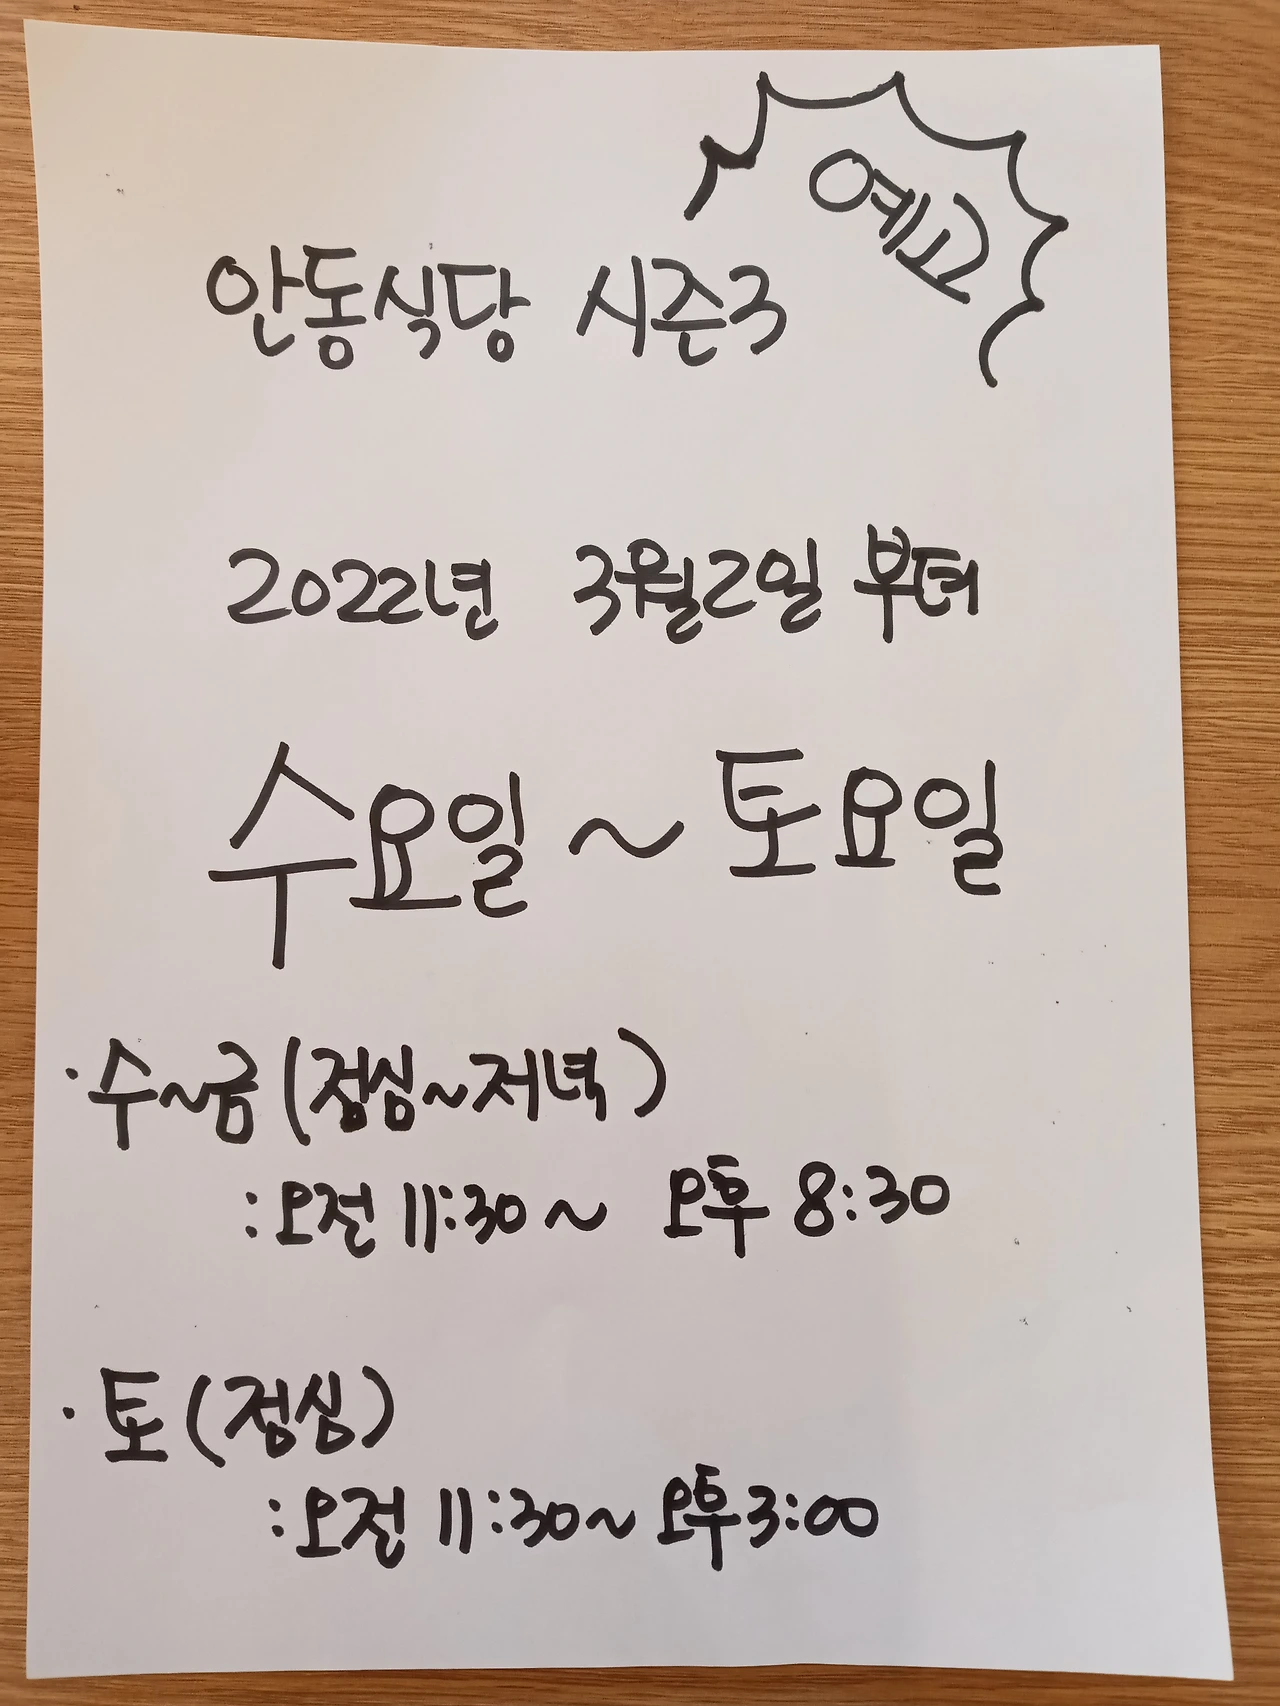 예고
안동식당 시즌3
2022년 3월2일 부터
수요일 ~ 토요일
· 수~금 (점심~저녁)
: 오전 11:30 ~ 오후 8:30
· 토 (점심)
: 오전 11:30 ~ 오후 3:00